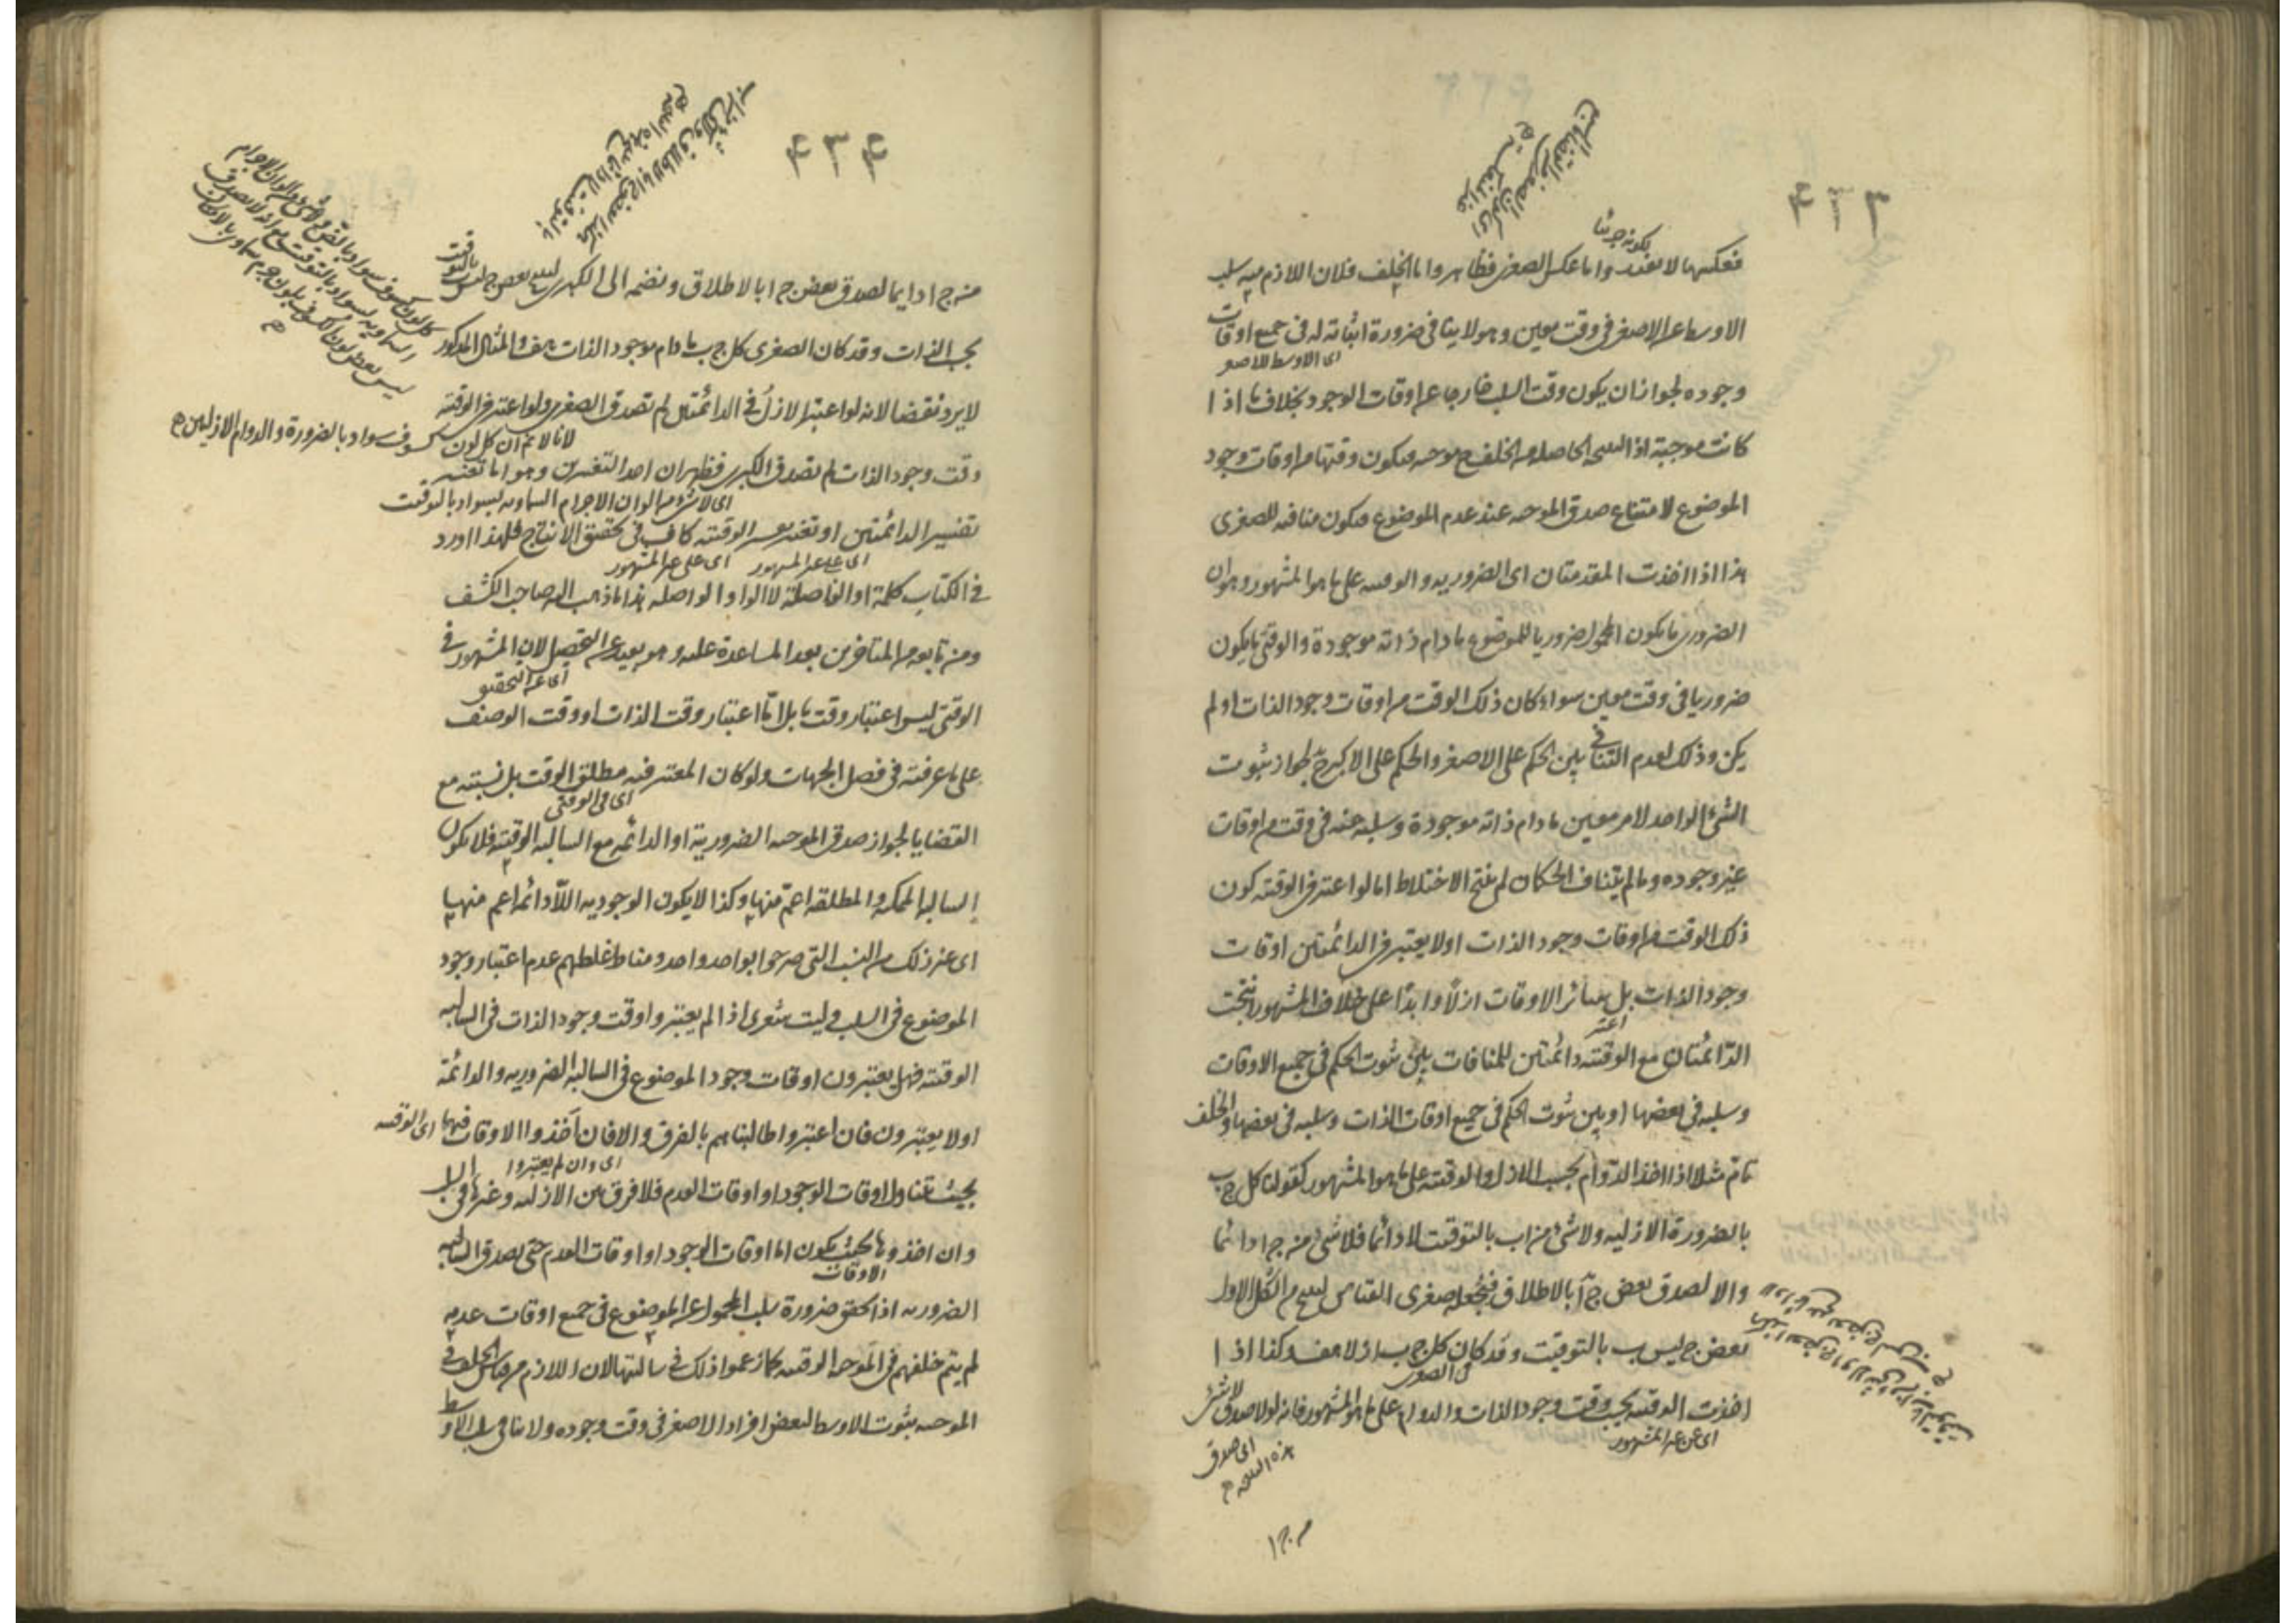 ٤٣٣
بكونه جزئيا
فعكسها لا يفيد واما عكس الصغرى فظاهر واما الخلف فلان اللازم منه سلب
الاوسط عن الاصغر فى وقت معين وهو لا ينافى ضرورة اثباته له فى جميع اوقات
اى الاوسط للاصغر
وجوده لجواز ان يكون وقت السلب خارجا عن اوقات الوجود بخلاف ما اذا
كانت موجبة اذ النتيجة الحاصلة من الخلف ح موجبة فيكون وقتها من اوقات وجود
الموضوع لامتناع صدق الموجبة عند عدم الموضوع فيكون منافية للصغرى
هذا اذا اخذت المقدمتان اى الضرورية والوقتية على ما هو المشهور وهو ان
الضرورى ما يكون المحمول ضروريا للموضوع ما دام ذاته موجودة والوقتى ما يكون
ضروريا فى وقت معين سواء كان ذلك الوقت من اوقات وجود الذات او لم
يكن وذلك لعدم التنافى بين الحكم على الاصغر والحكم على الاكبر ح لجواز ثبوت
الشئ الواحد لامر معين ما دام ذاته موجودة وسلبه عنه فى وقت من اوقات
غير وجوده وما لم يتناف الحكمان لم ينتج الاختلاط اما لو اعتبر فى الوقتية كون
ذلك الوقت من اوقات وجود الذات او لا يعتبر فى الدائمتين اوقات
وجود الذات بل سائر الاوقات ازلا وابدا على خلاف المشهور انتجت
اعتبر
الدائمتان مع الوقتية دائمتين للمنافات بين ثبوت الحكم فى جميع الاوقات
وسلبه فى بعضها او بين ثبوت الحكم فى جميع اوقات الذات وسلبه فى بعضها والخلف
تام مثلا اذا اخذ الدوام بحسب الازل والوقتية على ما هو المشهور كقولنا كل ج ب
بالضرورة الازلية ولا شئ من ا ب بالتوقيت لا دائما فلا شئ من ج ا دائما
والا لصدق بعض ج ا بالاطلاق فنجعله صغرى القياس لينتج من الشكل الاول
بعض ج ليس ب بالتوقيت وقد كان كل ج ب ازلا هف وكذا اذا
فى الصغرى
اخذت الوقتية بحسب وقت وجود الذات والدوام على ما هو المشهور فانه لو لا صدق لا شئ
اى عن غير المشهور
اى صدق
هذه النتيجة ح
من ج ا
٤٣٤
من ج ا دائما لصدق بعض ج ا بالاطلاق ونضمه الى الكبرى لينتج بعض ج ليس ب بالتوقيت
بحسب الذات وقد كان الصغرى كل ج ب ما دام موجود الذات هف والمثال المذكور
لا يرد نقضا لانه لو اعتبر الازل فى الدائمتين لم تصدق الصغرى ولو اعتبر فى الوقتية
لانا لا نم ان كل لون كسوف سواد بالضرورة والدوام الازليين ح
وقت وجود الذات لم تصدق الكبرى فظهر ان احد التفسيرين وهو اما تغيير
اى لا شئ من الوان الاجرام السماوية بسواد بالتوقيت
تفسير الدائمتين او تغيير تفسير الوقتية كاف فى تحقق الانتاج فلهذا اورد
اى على غير المشهور اى على غير المشهور
فى الكتاب كلمة او الفاصلة لا الواو الواصلة هذا ما ذهب اليه صاحب الكشف
ومن تابعه من المتاخرين بعد المساعدة عليه وهو بعيد عن التحصيل لان المشهور فى
اى عن التحقيق
الوقتى ليس اعتبار وقت ما بل اما اعتبار وقت الذات او وقت الوصف
على ما عرفته فى فصل الجهات ولو كان المعتبر فيه مطلق الوقت بطل نسبته مع
اى فى الوقتى
القضايا لجواز صدق الموجبة الضرورية او الدائمة مع السالبة الوقتية فلا يكون
السالبة الممكنة والمطلقة اعم منها وكذا لا يكون الوجودية اللادائمة اعم منها
الى غير ذلك من النسب التى صرحوا بواحد واحد ومناط غلطهم عدم اعتبار وجود
الموضوع فى السلب وليت شعرى اذا لم يعتبروا وقت وجود الذات فى السالبة
الوقتية فهل يعتبرون اوقات وجود الموضوع فى السالبة الضرورية والدائمة
او لا يعتبرون فان اعتبروا طالبناهم بالفرق والا فان اخذوا الاوقات فيهما اى الوقتية
اى وان لم يعتبروا
بحيث تتناول اوقات الوجود او اوقات العدم فلا فرق بين الازلية وغيرها فى السلب
وان اخذوها بحيث يكون اما اوقات الوجود او اوقات العدم حتى يصدق السالبة
الاوقات
الضرورية اذا تحقق ضرورة سلب المحمول عن الموضوع فى جميع اوقات عدمه
لم يتم خلفهم فى الموجبة الوقتية كما زعموا ذلك فى سالبتها لان اللازم من قياس الخلف فى
الموجبة ثبوت الاوسط لبعض افراد الاصغر فى وقت وجوده ولا ينافى سلب الاوسط